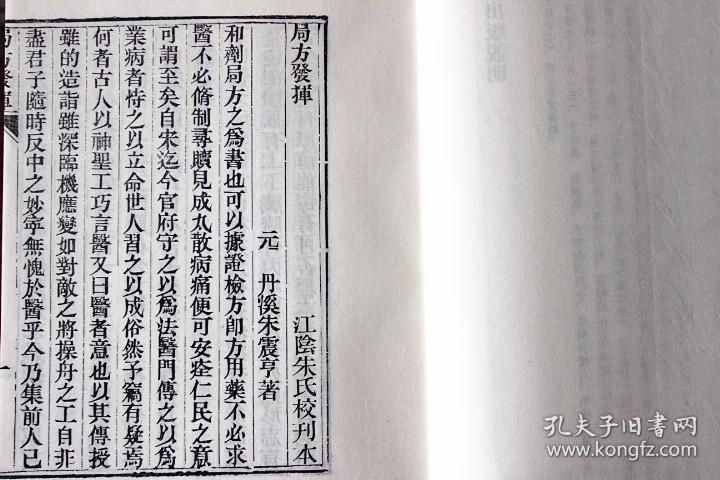 局方發揮
江陰朱氏校刊本
元 丹溪朱震亨著
和劑局方之爲書也可以據證檢方卽方用藥不必求
醫不必脩制尋贖見成丸散病痛便可安痊仁民之意
可謂至矣自宋迄今官府守之以爲法醫門傳之以爲
業病者恃之以立命世人習之以成俗然予竊有疑焉
何者古人以神聖工巧言醫又曰醫者意也以其傳授
雖的造詣雖深臨機應變如對敵之將操舟之工自非
盡君子隨時反中之妙寧無愧於醫乎今乃集前人已
局方發揮
一
出版説明
孔夫子旧书网
www.kongfz.com